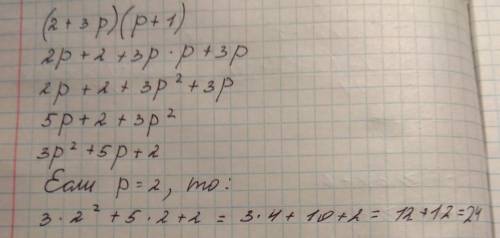 (2+3p)(p+1)
2p+2+3p·p+3p
2p+2+3p²+3p
5p+2+3p²
3p²+5p+2
Если p=2, то:
3·2²+5·2+2=3·4+10+2=12+12=24